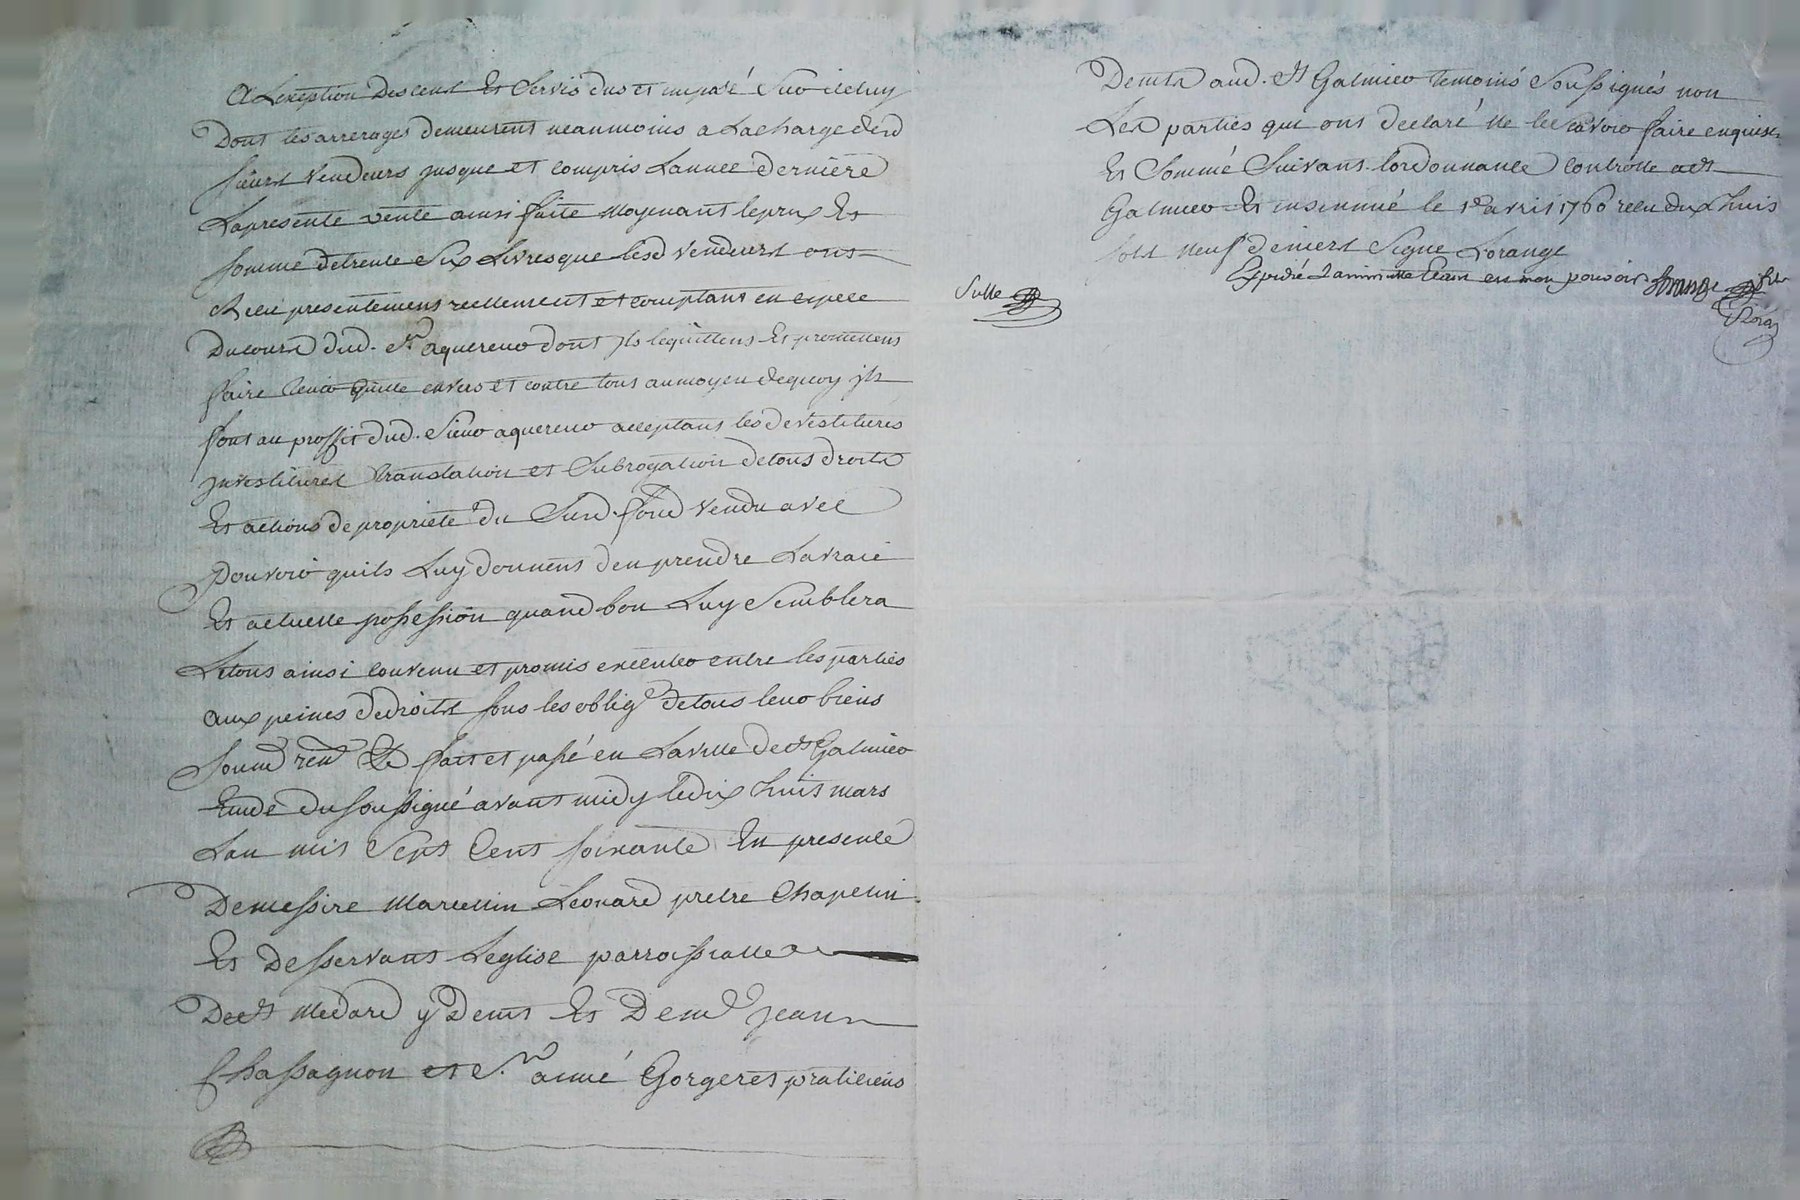 A Lexeption Descens Et Servis dus et imposé Sur iceluy
Dont les arrerages demeurent neanmoins a Lacharge desd
sieurs vendeurs jusque et compris Lannee derniere
Lapresente vente ainsi faite moyenant leprix Et
somme detrente Six Livres que lesd vendeurs ont
Recu presentement reellement et comptant en espece
Ducours dud. Sr aquereur dont jls lequittent Et promettent
faire tenir quitte envers et contre tous aumoyen dequoy jls
font au proffit dud. Sieur aquereur acceptant les devestitures
jnvestitures translation et Subrogation detous droits
Et actions de proprieté du Susd. fond vendu avec
pouvoir quils Luy donnent den prendre Lavraie
Et actuelle possession quand bon Luy Semblera
Letout ainsi convenu et promis executer entre les parties
aux peines dedroits sous les obligs detous leur biens
soumd rend &c fait et passé en Laville de St Galmier
Etude du soussigné avant midy ledix huit mars
Lan mil Sept Cent soixante En presence
Demessire Marcellin Leonard pretre Chapelin
Et Desservant Leglise parroissialle
De St Medard y Demt Et De me Jean
Chassagnon et Sr aimé Gorgeret praticiens
Demts aud. St Galmier temoins Soussignés non
Les parties qui ont declaré ne le scavoir faire enquises
Et Sommé Suivant lordonnance Controllé a St
Galmier Et insinué le 1er avril 1760 recu dix huit
sols neuf deniers Signé Lorange
Expedié Laminutte etant en mon pouvoir